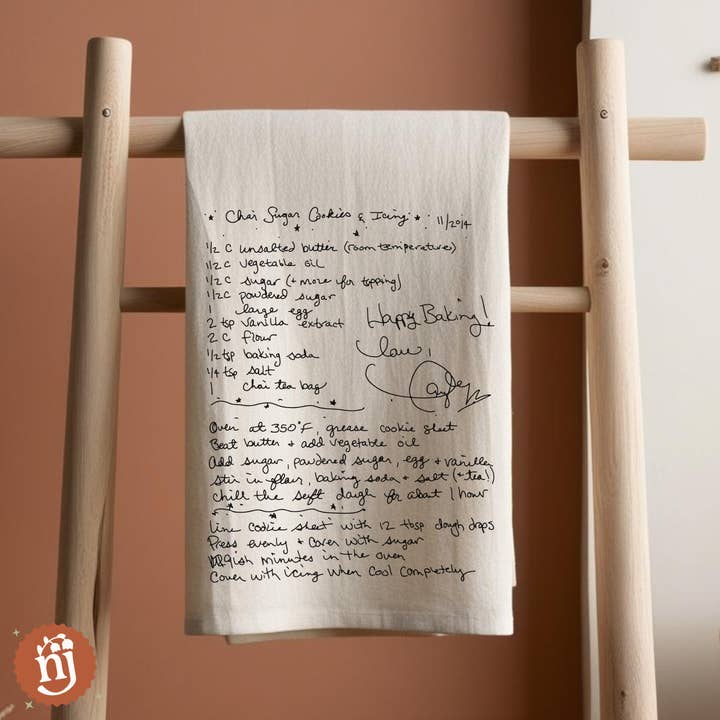 * Chai Sugar Cookies & Icing * 11/2014
1/2 c unsalted butter (room temperature)
1/2 c vegetable oil
1/2 c sugar (+ more for topping)
1/2 c powdered sugar
1 large egg
2 tsp vanilla extract
2 c flour
1/2 tsp baking soda
1/4 tsp salt
1 chai tea bag
Happy Baking!
Love,
Oven at 350°F, grease cookie sheet
Beat butter + add vegetable oil
Add sugar, powdered sugar, egg + vanilla
stir in flour, baking soda + salt (+ tea!)
chill the soft dough for about 1 hour
Line cookie sheet with 12 tbsp dough drops
Press evenly + cover with sugar
9ish minutes in the oven
Cover with icing when cool completely
nj